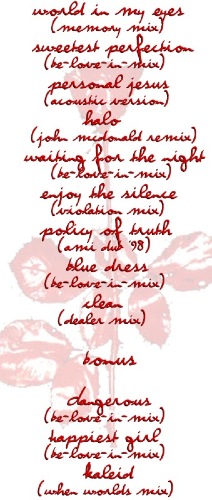 world in my eyes
(memory mix)
sweetest perfection
(be-love-in-mix)
personal jesus
(acoustic version)
halo
(john mcdonald remix)
waiting for the night
(be-love-in-mix)
enjoy the silence
(violation mix)
policy of truth
(ami dub '98)
blue dress
(be-love-in-mix)
clean
(dealer mix)
bonus
dangerous
(be-love-in-mix)
happiest girl
(be-love-in-mix)
kaleid
(when worlds mix)